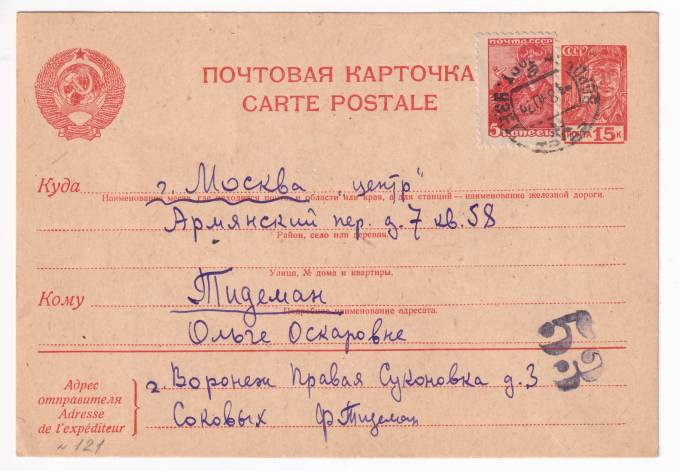 ПОЧТОВАЯ КАРТОЧКА
CARTE POSTALE
ПОЧТА СССР
5 КОПЕЕК
СССР
ПОЧТА 15 К
Куда г. Москва „центр"
Наименование места, где находится почта, и области или края, а для станций — наименование железной дороги.
Армянский пер. д. 7 кв. 58
Район, село или деревня.
Улица, № дома и квартиры.
Кому Тидеман
Подробное наименование адресата.
Ольге Оскаровне
53
Адрес
отправителя
Adresse
de l'expéditeur
г. Воронеж Правая Суконовка д. 3
Соковых Ф Тидеман
№ 121